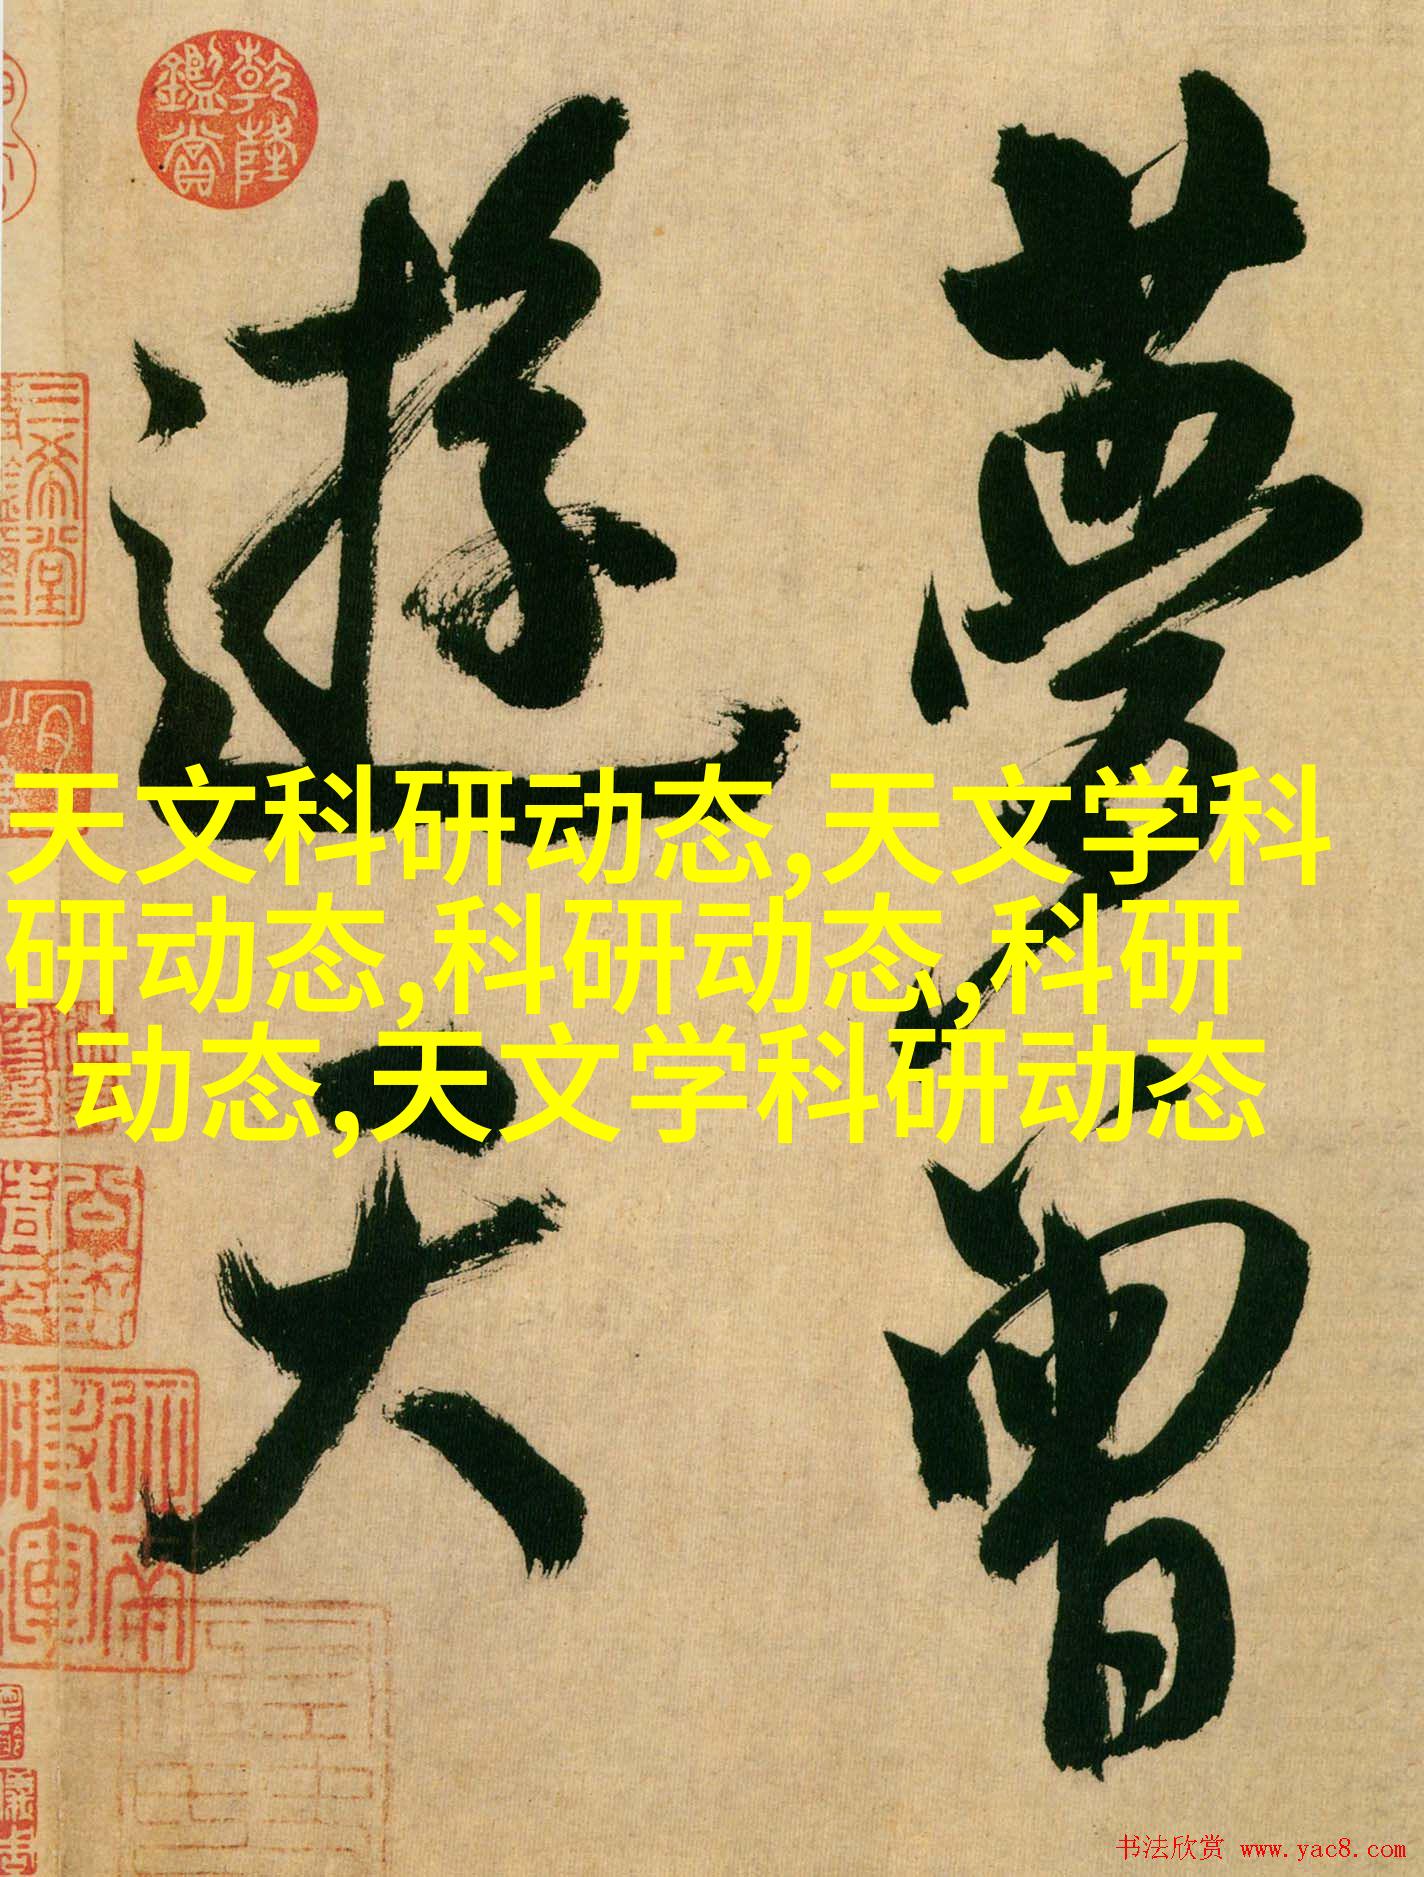 夢曾
遊天
乾隆鑑賞
三希堂
天文科研动态,天文学科
研动态,科研动态,科研
动态,天文学科研动态
书法欣赏 www.yac8.com